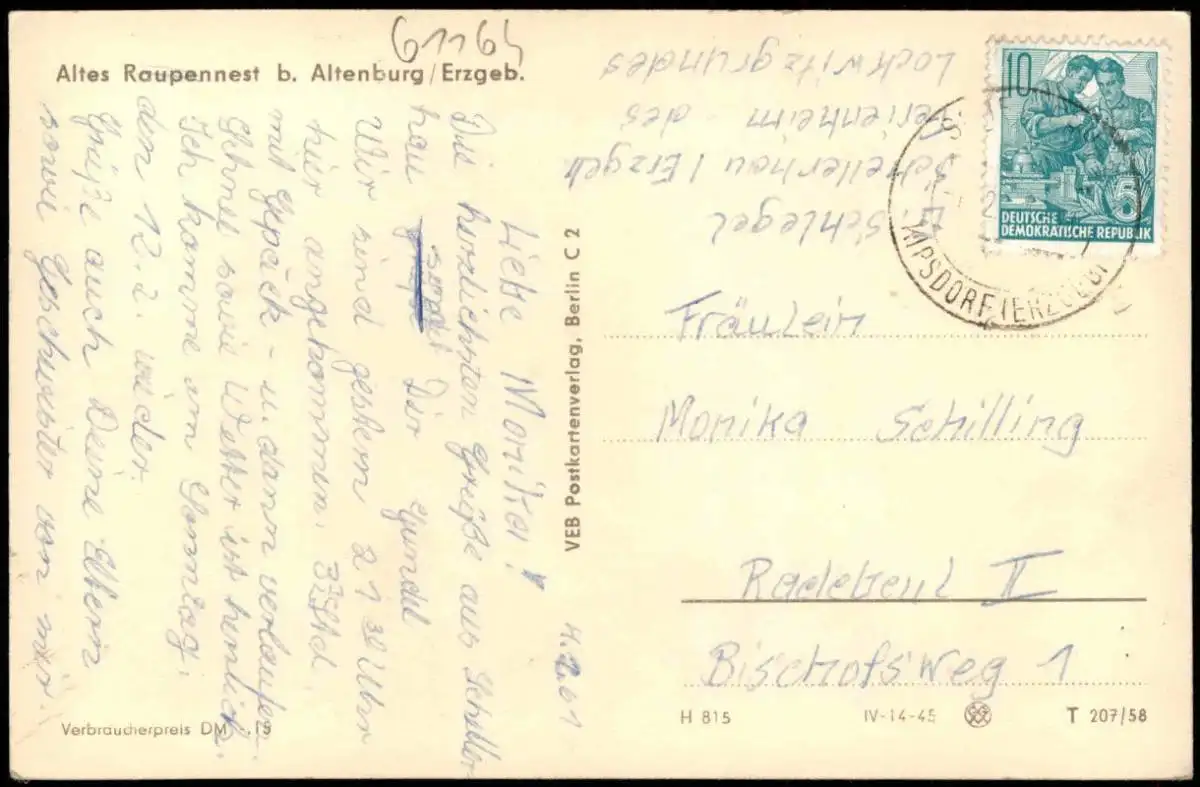 61164
Altes Raupennest b. Altenburg/Erzgeb.
4.2.61
Liebe Monika!
Die herzlichsten Grüße aus Scheller-
hau Dir Gundel
Wir sind gestern 21 30 Uhr
hier angekommen. 3 Std.
mit Gepäck - u. dann verlaufen.
Schnee sowie Wetter ist herrlich.
Ich komme am Sonntag,
den 12.2. wieder.
Grüße auch Deine Eltern
sowie Geschwister von mir.
Verbraucherpreis DM -.15
VEB Postkartenverlag, Berlin C 2
Schlegel
Schellerhau / Erzgeb
Ferienheim - des
Lockwitzgrundes
10
5
DEUTSCHE
DEMOKRATISCHE REPUBLIK
IPSDORF (ERZGEB)
Fräulein
Monika Schilling
Radebeul II
Bischofsweg 1
H 815
IV-14-45
T 207/58